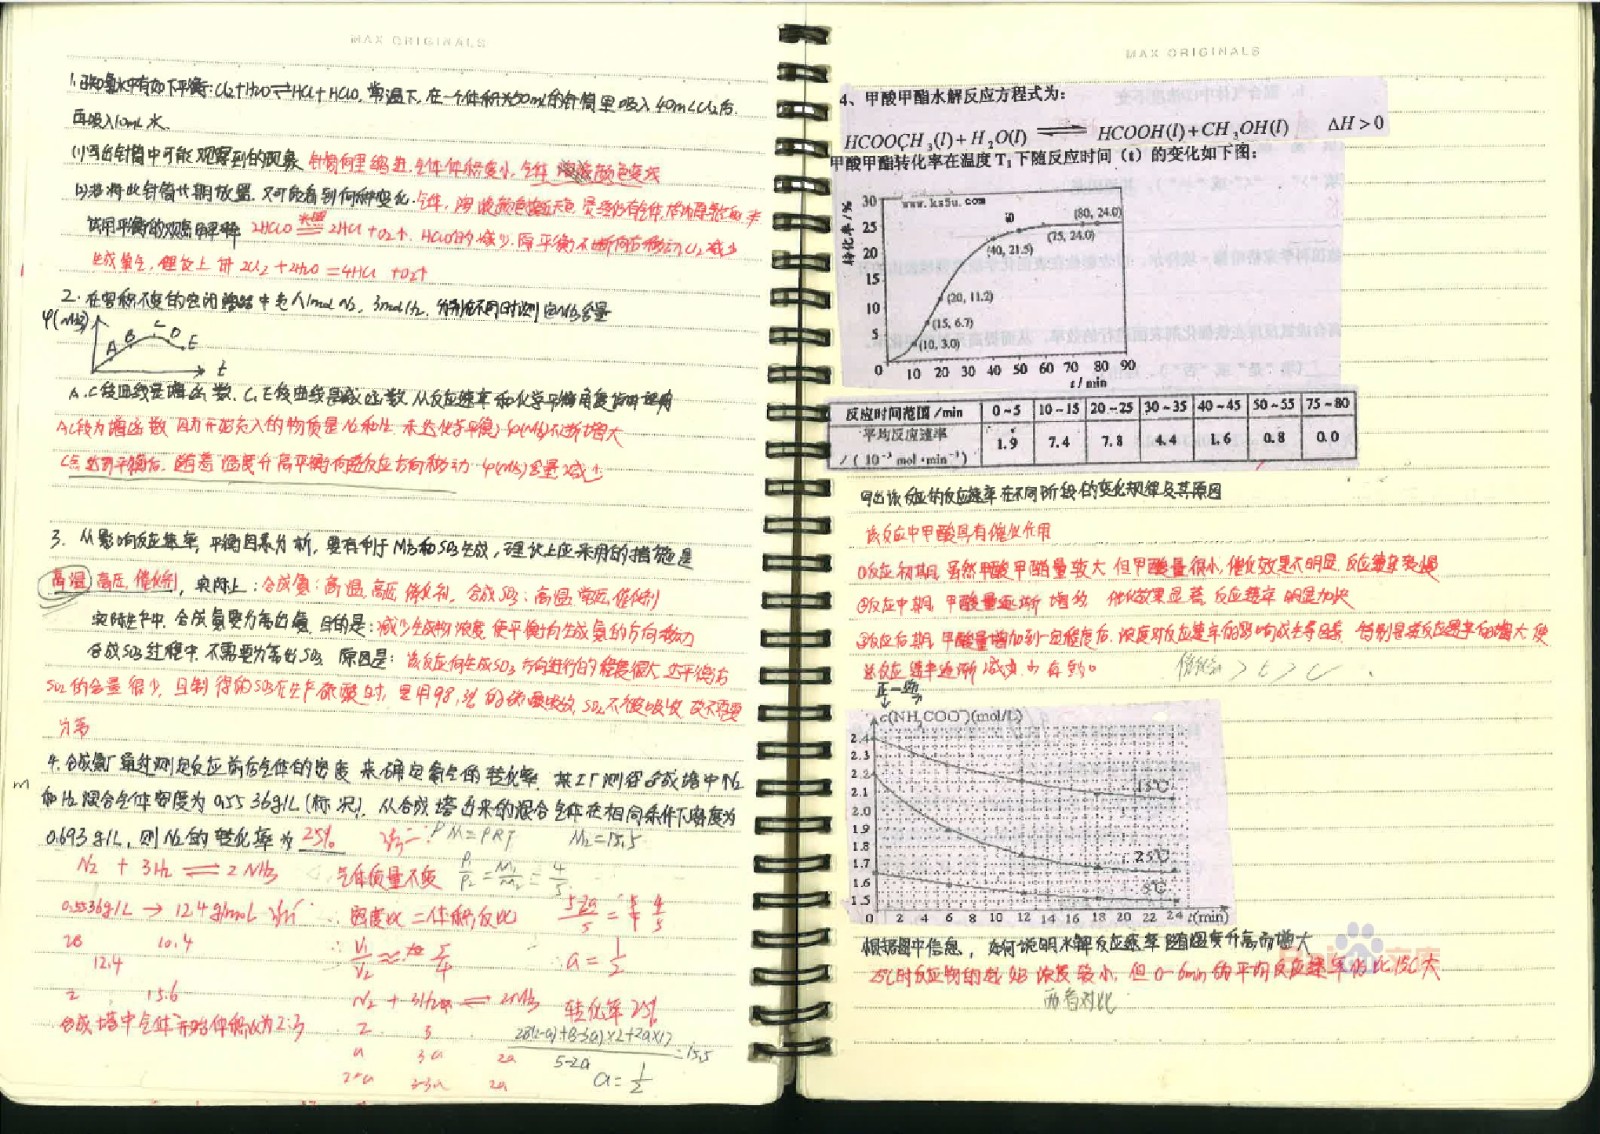 MAX ORIGINALS
1.已知氯水中有如下平衡:Cl₂+H₂O⇌HCl+HClO,常温下,在一个体积为50mL的针筒里吸入40mLCl₂后,
再吸入10mL水.
(1)写出针筒中可能观察到的现象 针筒向里缩进,气体体积变小,气体颜色变浅
(2)若将此针筒长期放置,又可能看到何种变化.
试用平衡的观点解释 2HClO 光照 2HCl+O₂↑. HClO的减少,原平衡不断向右移动,Cl₂减少
生成氧气,理论上讲 2Cl₂+2H₂O=4HCl+O₂↑
2.在容积不变的密闭容器中充入1molN₂,3molH₂,分别在不同时测定NH₃含量
φ(NH₃)
A B C D E
t
A.C段曲线是增函数,C.E段曲线是减函数,从反应速率和化学平衡角度
AC段为增函数 因为开始充入的物质是N₂和H₂,未达化学平衡,φ(NH₃)不断增大
C点达到平衡后,随着温度升高平衡向逆反应方向移动 φ(NH₃)含量减小
3.从影响反应速率,平衡因素分析,要有利于NH₃和SO₃生成,理论上应采用的措施是
高温,高压,催化剂,实际上:合成氨:高温,高压,催化剂,合成SO₃:高温,常压,催化剂
实际生产中,合成氨要分离出氨,目的是:减少生成物浓度,使平衡向生成氨的方向移动
合成SO₃过程中,不需要分离出SO₃ 原因是:该反应向生成SO₃方向进行的程度很大,达平衡后
SO₂的含量很少,且制得的SO₃在生产硫酸时,是用98.3%的硫酸吸收,SO₂不被吸收,故不需要
分离
4.合成氨厂通过测定反应前后气体的密度,来确定氮气的转化率,某工厂测得合成塔中N₂
和H₂混合气体密度为0.5536g/L(标况),从合成塔出来的混合气体在相同条件下密度为
0.693g/L,则N₂的转化率为 25% PM=ρRT M₂=15.5
N₂ + 3H₂ ⇌ 2NH₃ 气体质量不变 ρ₁/ρ₂=M₁/M₂=4/5
0.5536g/L → 12.4g/mol ∴密度比=体积反比 (5-2a)/5=4/5
28 10.4
12.4 ∴V₁/V₂≈5/4 ∴a=1/2
2 15.6 N₂+3H₂⇌2NH₃ 转化率25%
合成塔中气体开始体积比为2:3 2 3 (28(2-a)+(3-3a)×2+2a×17)/(5-2a)=15.5
a 3a 2a
2-a 3-3a 2a a=1/2
MAX ORIGINALS
4、甲酸甲酯水解反应方程式为:
HCOOCH₃(l)+H₂O(l) ⇌ HCOOH(l)+CH₃OH(l) ΔH>0
甲酸甲酯转化率在温度T₁下随反应时间(t)的变化如下图:
转化率/%
www.ks5u.com
30 25 20 15 10 5 0
(80, 24.0)
(75, 24.0)
(40, 21.5)
(20, 11.2)
(15, 6.7)
(10, 3.0)
10 20 30 40 50 60 70 80 90
t/min
反应时间范围/min 0~5 10~15 20~25 30~35 40~45 50~55 75~80
平均反应速率
/(10⁻³ mol·min⁻¹) 1.9 7.4 7.8 4.4 1.6 0.8 0.0
写出该反应的反应速率在不同阶段的变化规律及其原因
该反应中甲酸具有催化作用
①反应初期,虽然甲酸甲酯量较大,但甲酸量很小,催化效果不明显,反应速率较慢
②反应中期,甲酸量逐渐增多,催化效果显著,反应速率明显加快
③反应后期,甲酸量增加到一定程度后,浓度对反应速率的影响成主导因素,
总反应速率逐渐减小
c(NH₂COO⁻)(mol/L)
2.4
2.3
2.2
2.1
2.0
1.9
1.8
1.7
1.6
1.5
15℃
25℃
0 2 4 6 8 10 12 14 16 18 20 22 24 t(min)
根据图中信息,如何说明水解反应速率随温度升高而增大
25℃时反应物的起始浓度较小,但0-6min的平均反应速率比15℃大
两者对比